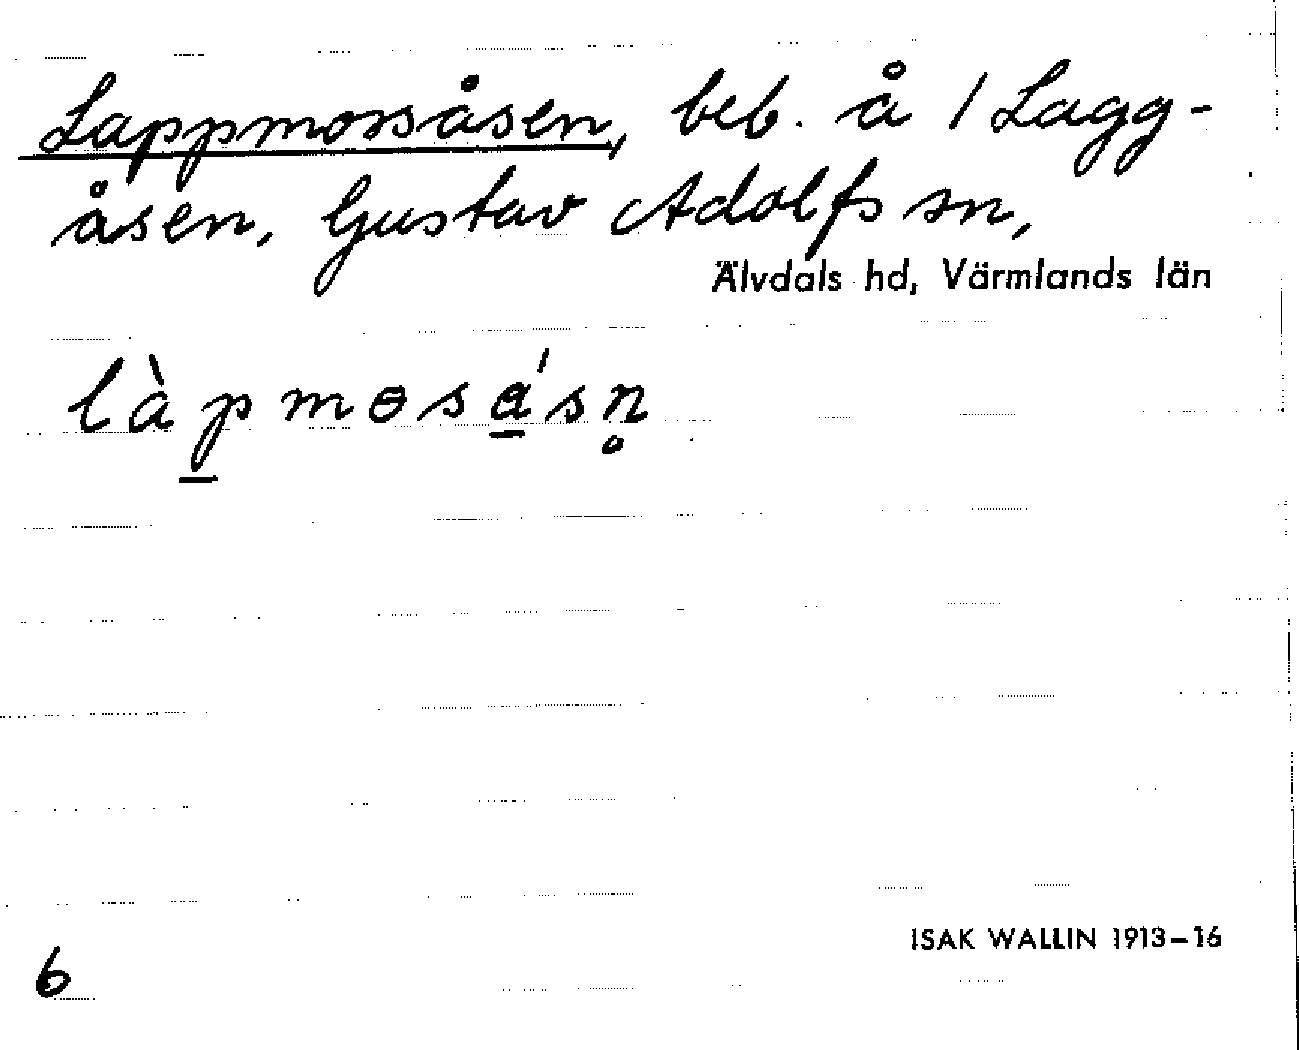 Lappmossåsen, beb. å / Lagg-
åsen, Gustav Adolfs sn,
Älvdals hd, Värmlands län
làp̲mɵsa̲ʹsn̥
6
ISAK WALLIN 1913–16